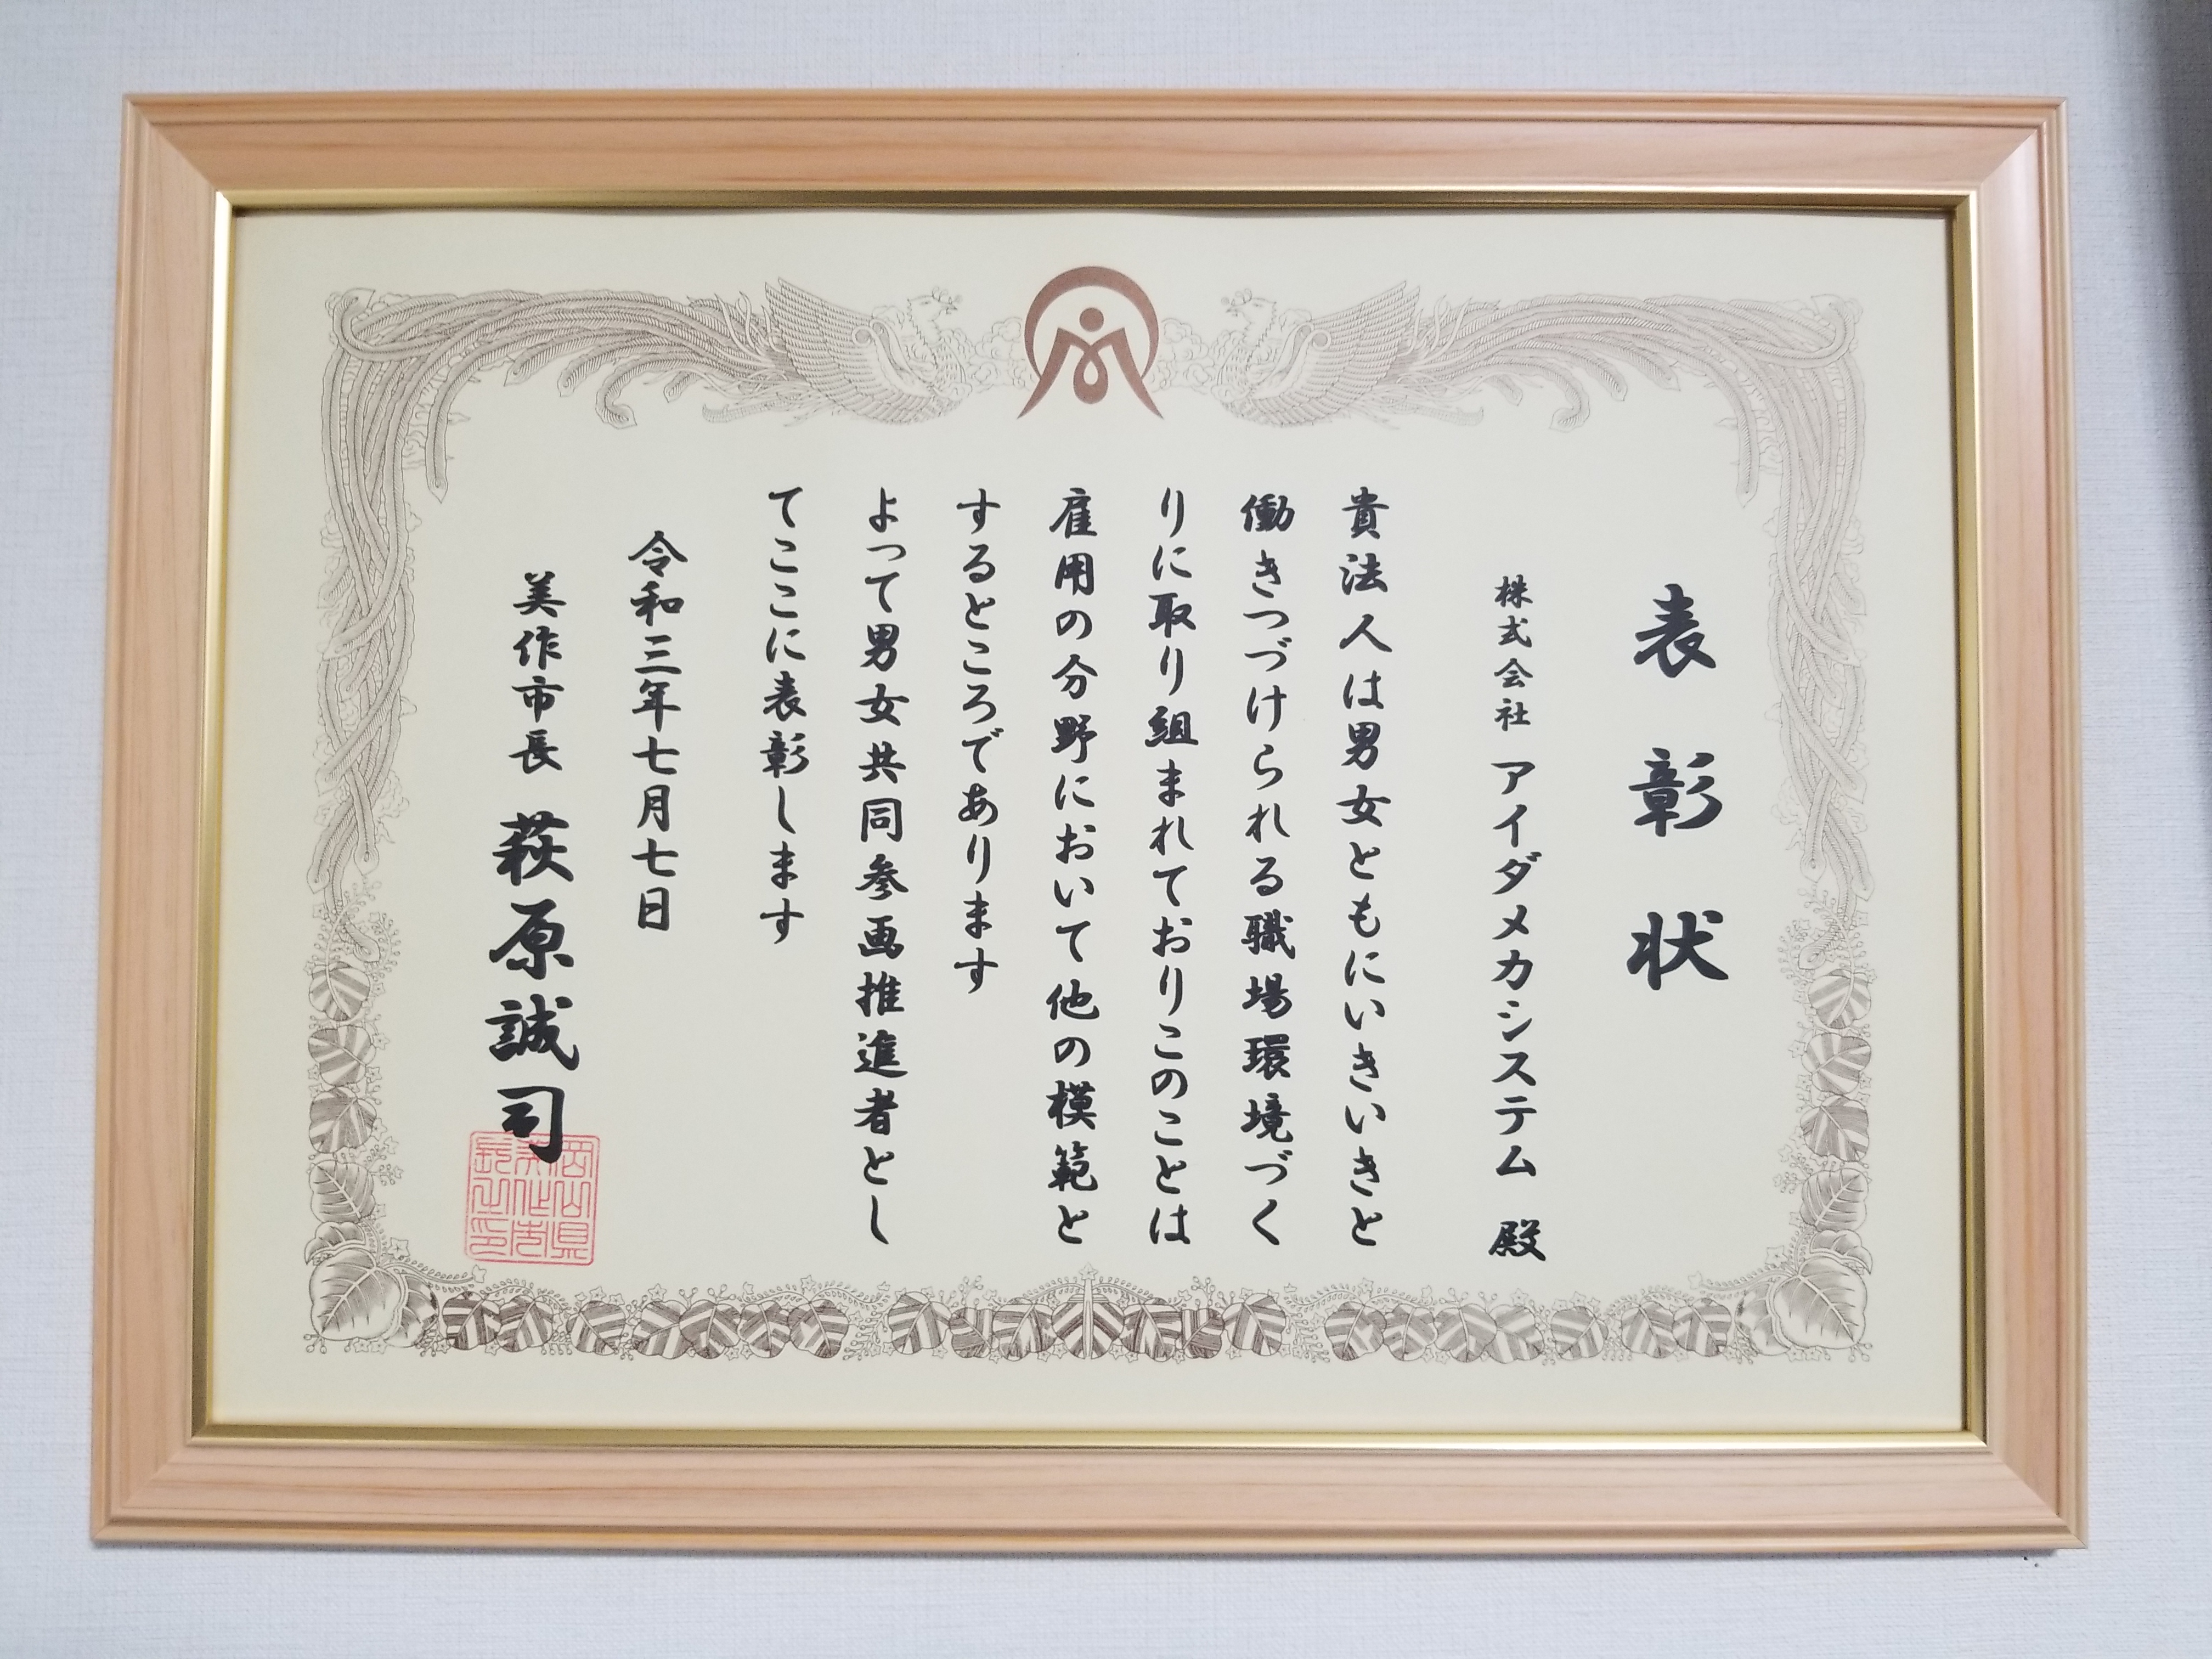 表彰状
株式会社 アイダメカシステム 殿
貴法人は男女ともにいきいきと
働きつづけられる職場環境づく
りに取り組まれておりこのことは
雇用の分野において他の模範と
するところであります
よって男女共同参画推進者とし
てここに表彰します
令和三年七月七日
美作市長 萩原誠司
岡山県
美作市
長之印